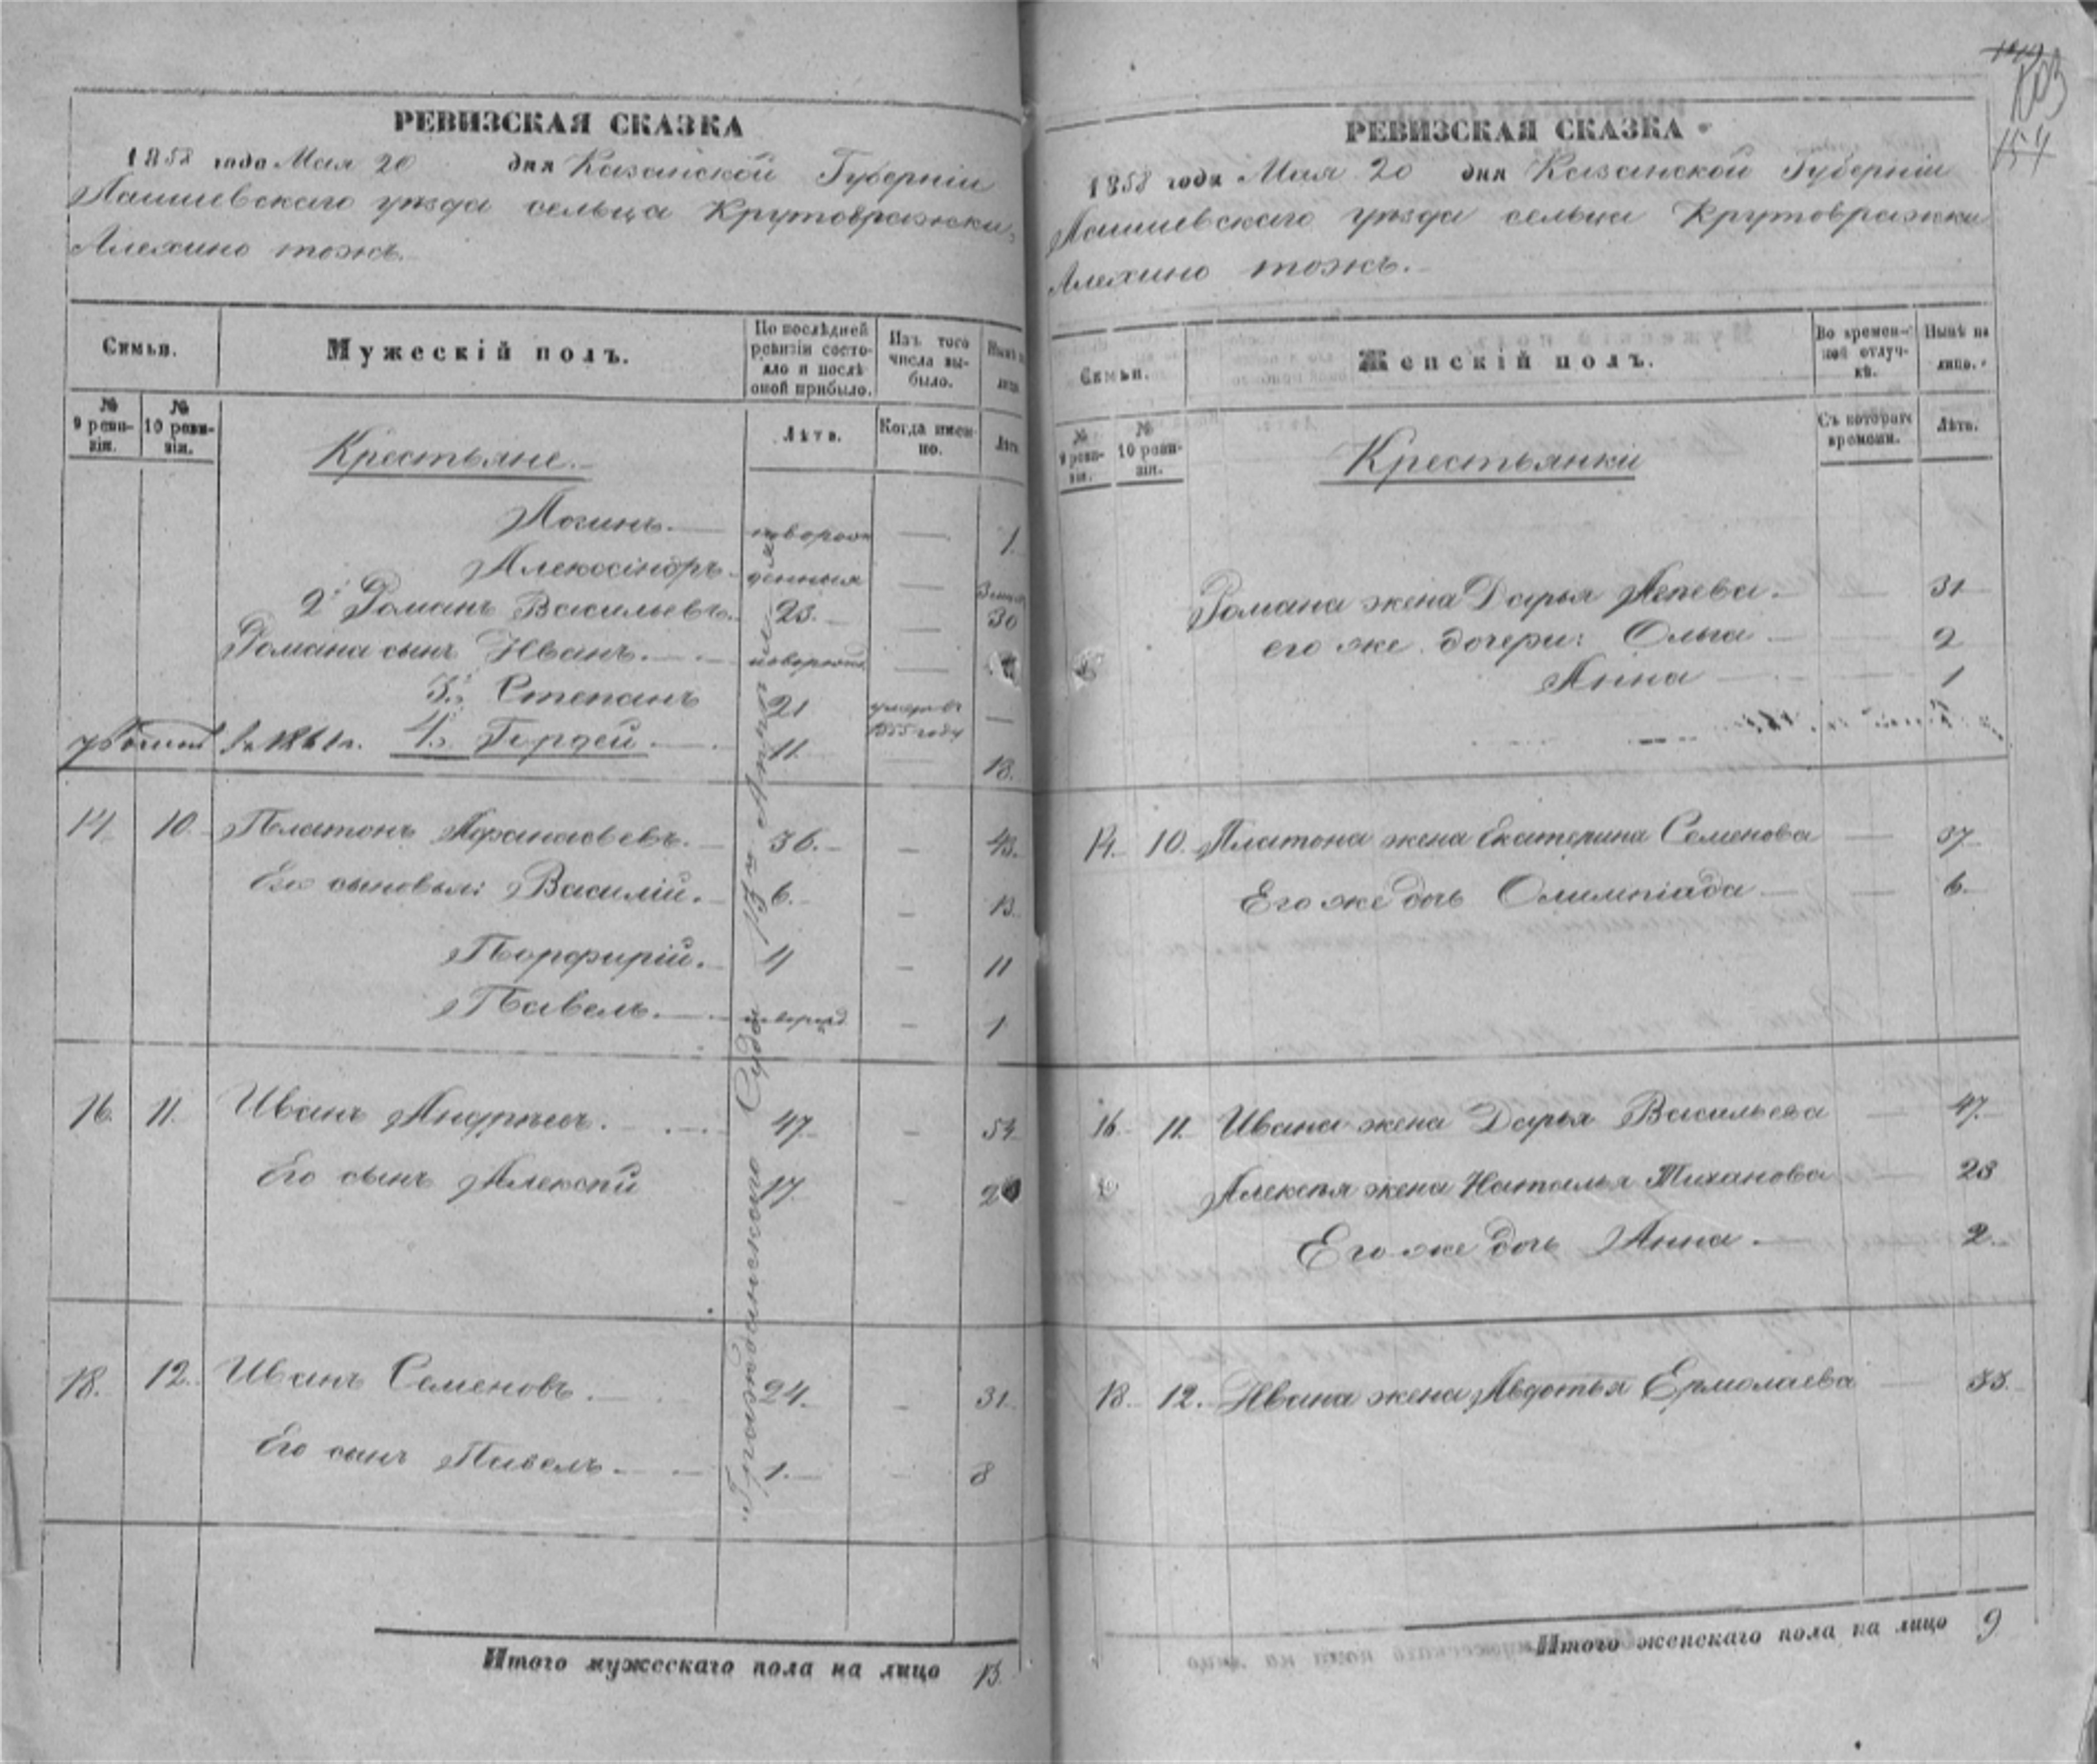 РЕВИЗСКАЯ СКАЗКА
1858 года Мая 20 дня Казанской Губерніи
Лаишевскаго уѣзда сельца Крутовражки,
Алехино тожъ.
Семьи.
Мужескій полъ.
По послѣдней ревизіи состояло и послѣ оной прибыло.
Изъ того числа выбыло.
Нынѣ на лицо.
№ 9 ревизіи.
№ 10 ревизіи.
Лѣта.
Когда именно.
Лѣта.
Крестьяне.
Логинъ. — новорож — 1.
Александръ — денныя —
2й Романъ Васильевъ. 23. — 30
Романа сынъ Иванъ. — новорожд —
3й Степанъ 21 умеръ въ 1855 году —
в 1861 г. 4й Гордей. — 11. — 18.
14 10. Платонъ Афанасьевъ. 36. — 43.
Его сыновья: Василій. 6. — 13
Порфирій. 4 — 11
Павелъ. — новорожд — 1
16. 11. Иванъ Андреевъ. 47. — 54
Его сынъ Алексѣй 17 — 2
18. 12. Иванъ Семеновъ. 24. — 31.
Его сынъ Павелъ. 1. — 8
Гражданскаго Суда
Итого мужескаго пола на лицо 13.
103
154
РЕВИЗСКАЯ СКАЗКА
1858 года Мая 20 дня Казанской Губерніи
Лаишевскаго уѣзда сельца Крутовражки
Алехино тожъ.
Семьи.
Женскій полъ.
Во временной отлучкѣ.
Нынѣ на лицо.
№ 9 ревизіи.
№ 10 ревизіи.
Съ котораго времени.
Лѣта.
Крестьянки
Романа жена Дарья — 31
его же дочери: Ольга — 2
Анна — 1
14. 10. Платона жена Екатерина Семенова — 37
Его же дочь Олимпіада — 6.
16. 11. Ивана жена Дарья Васильева — 47.
Алексѣя жена Наталья Тиханова — 23
Его же дочь Анна. — 2.
18. 12. Ивана жена Авдотья Ермолаева — 33.
Итого женскаго пола на лицо 9